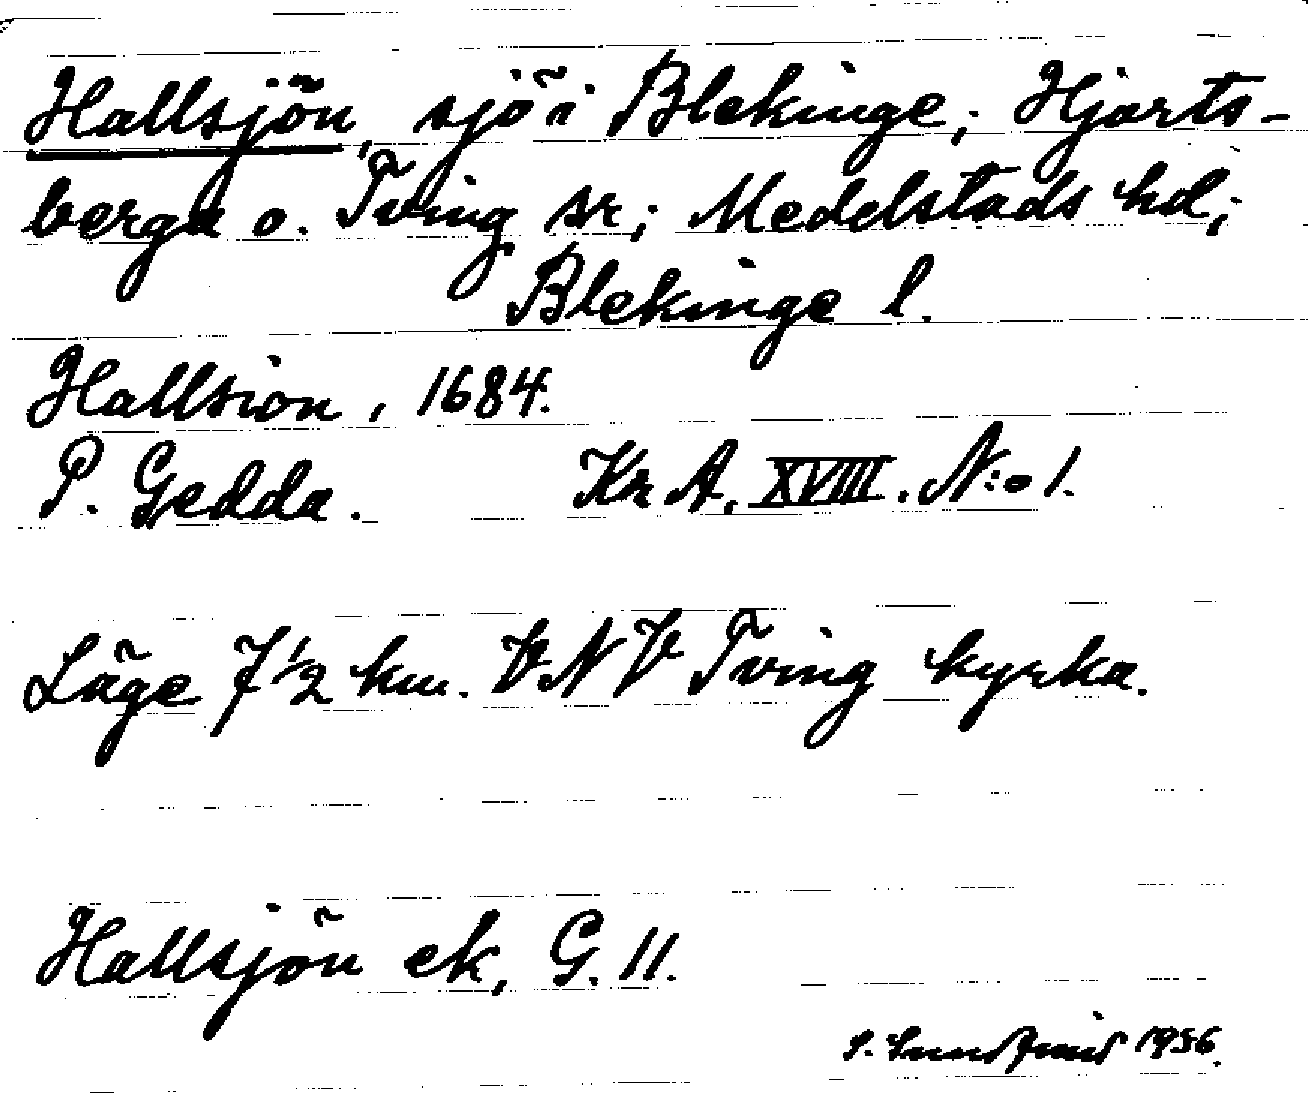 Hallsjön, sjö i Blekinge; Hjorts-
berga o. Tving sr; Medelstads hd;
Blekinge l.
Hallsion, 1684.
P. Gedda. Kr A, XVIII. N:o 1.
Läge 7 1/2 km. VNV Tving kyrka.
Hallsjön ek, G. 11.
1956.